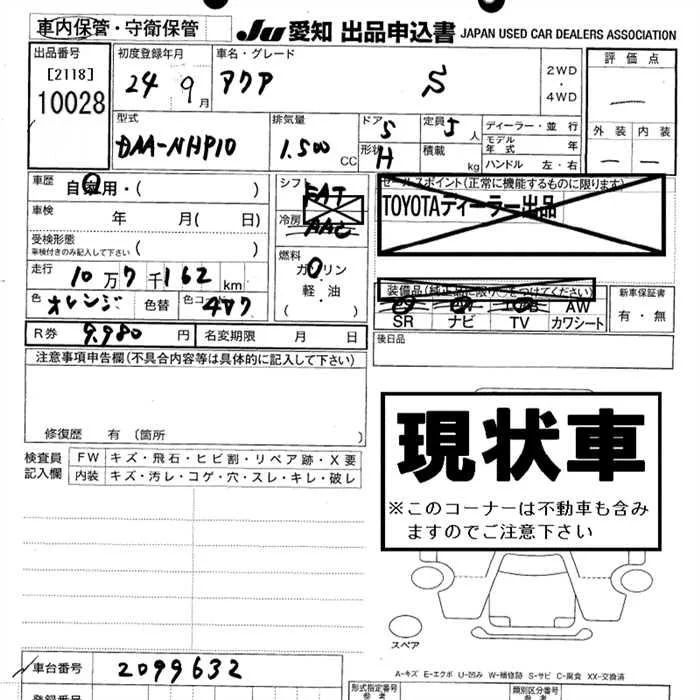 車内保管・守衛保管
Ju 愛知 出品申込書 JAPAN USED CAR DEALERS ASSOCIATION
出品番号
[2118]
10028
初度登録年月
24 9月
車名・グレード
アクア S
2WD
・
4WD
評価点
—
外装 内装
— —
型式
DAA-NHP10
排気量
1.500 CC
ドア 5
形状 H
定員 5 人
積載 kg
ディーラー・並行
モデル年式 年
ハンドル 左・右
車歴 自家用・( )
車検 年 月( 日)
受検形態
車検付きのみ記入して下さい ( )
走行 10万7千162 km
色 オレンジ 色替 色コード 4R7
シフト FAT
冷房 AAC
燃料
ガソリン
軽・油
( )
セールスポイント(正常に機能するものに限ります)
TOYOTAディーラー出品
装備品(純正品に限り○をつけてください)
AW
SR ナビ TV カワシート
新車保証書
有・無
R券 9.980 円 名変期限 月 日
後日品
注意事項申告欄(不具合内容等は具体的に記入して下さい)
修復歴 有 (箇所 )
現状車
※このコーナーは不動車も含み
ますのでご注意下さい
検査員
記入欄
FW キズ・飛石・ヒビ割・リペア跡・X要
内装 キズ・汚レ・コゲ・穴・スレ・キレ・破レ
スペア
A-キズ E-エクボ U-凹み W-補修跡 S-サビ C-腐食 XX-交換済
車台番号 2099632
登録番号
形式指定番号
参考
類別区分番号
参考